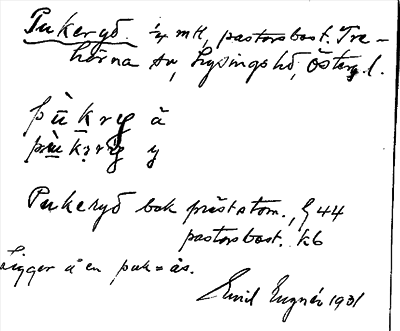 Pukeryd. ¼ mtl, pastorsbost. Tre-
hörna sn, Lysings hd, Österg. l.
pùkryd å
Pukeryd bok präststom., § 44
pastorsbost. kb
Ligger å en puk-ås.
Emil 1931